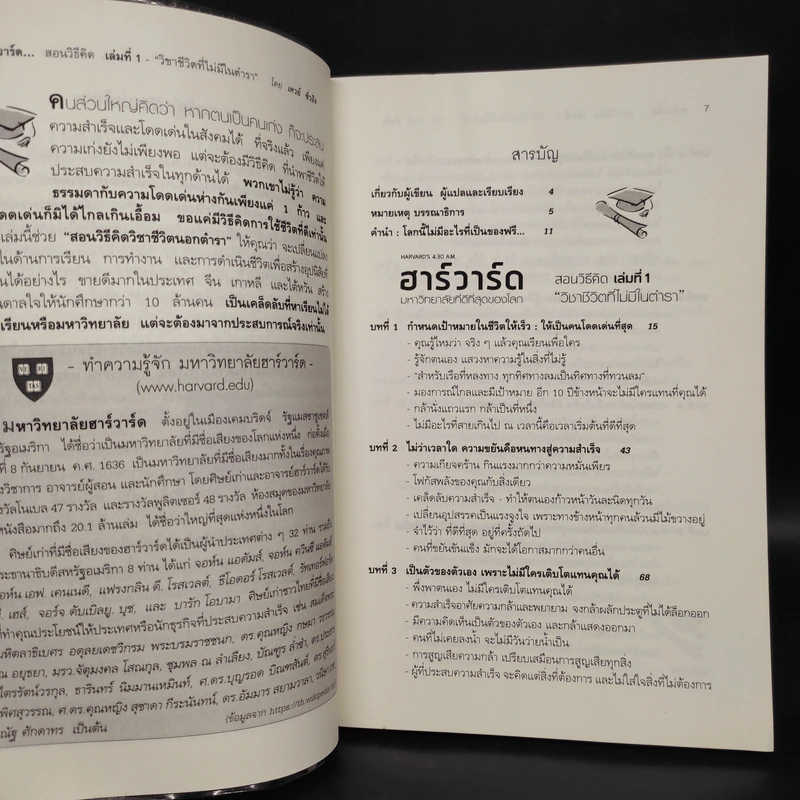 วาร์ด... สอนวิธีคิด เล่มที่ 1 - "วิชาชีวิตที่ไม่มีในตำรา" โดย
คนส่วนใหญ่คิดว่า หากตนเป็นคนเก่ง ก็จะประสบ
ความสำเร็จและโดดเด่นในสังคมได้ ที่จริงแล้ว เพียงแค่
ความเก่งยังไม่เพียงพอ แต่จะต้องมีวิธีคิด ที่นำพาชีวิตให้
ประสบความสำเร็จในทุกด้านได้ พวกเขาไม่รู้ว่า ความ
ธรรมดากับความโดดเด่นห่างกันเพียงแค่ 1 ก้าว และ
ดดเด่นก็มิได้ไกลเกินเอื้อม ขอแค่มีวิธีคิดการใช้ชีวิตที่ดีเท่านั้น
เล่มนี้ช่วย "สอนวิธีคิดวิชาชีวิตนอกตำรา" ให้คุณว่า จะเปลี่ยนแปลง
ในด้านการเรียน การทำงาน และการดำเนินชีวิตเพื่อสร้างอุปนิสัยที่
ได้อย่างไร ขายดีมากในประเทศ จีน เกาหลี และไต้หวัน สร้าง
ดาลใจให้นักศึกษากว่า 10 ล้านคน เป็นเคล็ดลับที่หาเรียนไม่ได้
เรียนหรือมหาวิทยาลัย แต่จะต้องมาจากประสบการณ์จริงเท่านั้น
- ทำความรู้จัก มหาวิทยาลัยฮาร์วาร์ด -
(www.harvard.edu)
มหาวิทยาลัยฮาร์วาร์ด ตั้งอยู่ในเมืองเคมบริดจ์ รัฐแมสซาชูเซตส์
รัฐอเมริกา ได้ชื่อว่าเป็นมหาวิทยาลัยที่มีชื่อเสียงของโลกแห่งหนึ่ง ก่อตั้งเมื่อ
ที่ 8 กันยายน ค.ศ. 1636 เป็นมหาวิทยาลัยที่มีชื่อเสียงมากทั้งในเรื่องคุณภาพ
วิชาการ อาจารย์ผู้สอน และนักศึกษา โดยศิษย์เก่าและอาจารย์ฮาร์วาร์ดได้รับ
งวัลโนเบล 47 รางวัล และรางวัลพูลิตเซอร์ 48 รางวัล ห้องสมุดของมหาวิทยาลัย
หนังสือมากถึง 20.1 ล้านเล่ม ได้ชื่อว่าใหญ่ที่สุดแห่งหนึ่งในโลก
ศิษย์เก่าที่มีชื่อเสียงของฮาร์วาร์ดได้เป็นผู้นำประเทศต่าง ๆ 32 ท่าน รวมถึง
ระธานาธิบดีสหรัฐอเมริกา 8 ท่าน ได้แก่ จอห์น แอดัมส์, จอห์น ควินซี แอดัมส์,
อห์น เอฟ. เคนเนดี, แฟรงกลิน ดี. โรสเวลต์, ธีโอดอร์ โรสเวลต์, รัทเทอร์ฟอร์ด
บี. เฮส์, จอร์จ ดับเบิลยู. บุช, และ บารัก โอบามา ศิษย์เก่าชาวไทยที่มีชื่อเสียง
ที่ทำคุณประโยชน์ให้ประเทศหรือนักธุรกิจที่ประสบความสำเร็จ เช่น สมเด็จพระ
มหิตลาธิเบศร อดุลยเดชวิกรม พระบรมราชชนก, ดร.คุณหญิง กษมา วรวรรณ
ณ อยุธยา, มรว.จัตุมงคล โสณกุล, ชุมพล ณ ลำเลียง, บัณฑูร ล่ำซำ, ดร.ประสาร
ไตรรัตน์วรกุล, ธารินทร์ นิมมานเหมินท์, ศ.ดร.บุญรอด บิณฑสันต์, ดร.สุรินทร์
พิศสุวรรณ, ศ.ดร.คุณหญิง สุชาดา กีระนันทน์, ดร.อัมมาร สยามวาลา, วนิษา เรซ,
ณัฐ ศักดาทร เป็นต้น
(ข้อมูลจาก https://th.wikipedia
7
สารบัญ
เกี่ยวกับผู้เขียน ผู้แปลและเรียบเรียง 4
หมายเหตุ บรรณาธิการ 5
คำนำ : โลกนี้ไม่มีอะไรที่เป็นของฟรี... 11
HARVARD'S 4:30 A.M.
ฮาร์วาร์ด สอนวิธีคิด เล่มที่ 1
มหาวิทยาลัยที่ดีที่สุดของโลก "วิชาชีวิตที่ไม่มีในตำรา"
บทที่ 1 กำหนดเป้าหมายในชีวิตให้เร็ว : ให้เป็นคนโดดเด่นที่สุด 15
- คุณรู้ไหมว่า จริง ๆ แล้วคุณเรียนเพื่อใคร
- รู้จักตนเอง แสวงหาความรู้ในสิ่งที่ไม่รู้
- "สำหรับเรือที่หลงทาง ทุกทิศทางลมเป็นทิศทางที่ทวนลม"
- มองการณ์ไกลและมีเป้าหมาย อีก 10 ปีข้างหน้าจะไม่มีใครแทนที่คุณได้
- กล้านั่งแถวแรก กล้าเป็นที่หนึ่ง
- ไม่มีอะไรที่สายเกินไป ณ เวลานี้คือเวลาเริ่มต้นที่ดีที่สุด
บทที่ 2 ไม่ว่าเวลาใด ความขยันคือหนทางสู่ความสำเร็จ 43
- ความเกียจคร้าน กินแรงมากกว่าความหมั่นเพียร
- โฟกัสพลังของคุณกับสิ่งเดียว
- เคล็ดลับความสำเร็จ - ทำให้ตนเองก้าวหน้าวันละนิดทุกวัน
- เปลี่ยนอุปสรรคเป็นแรงจูงใจ เพราะทางข้างหน้าทุกคนล้วนมีไม้ขวางอยู่
- จำไว้ว่า ที่ดีที่สุด อยู่ที่ครั้งถัดไป
- คนที่ขยันขันแข็ง มักจะได้โอกาสมากกว่าคนอื่น
บทที่ 3 เป็นตัวของตัวเอง เพราะไม่มีใครเติบโตแทนคุณได้ 68
- พึ่งพาตนเอง ไม่มีใครเติบโตแทนคุณได้
- ความสำเร็จอาศัยความกล้าและพยายาม จงกล้าผลักประตูที่ไม่ได้ล็อกออก
- มีความคิดเห็นเป็นตัวของตัวเอง และกล้าแสดงออกมา
- คนที่ไม่เคยลงน้ำ จะไม่มีวันว่ายน้ำเป็น
- การสูญเสียความกล้า เปรียบเสมือนการสูญเสียทุกสิ่ง
- ผู้ที่ประสบความสำเร็จ จะคิดแต่สิ่งที่ต้องการ และไม่ใส่ใจสิ่งที่ไม่ต้องการ